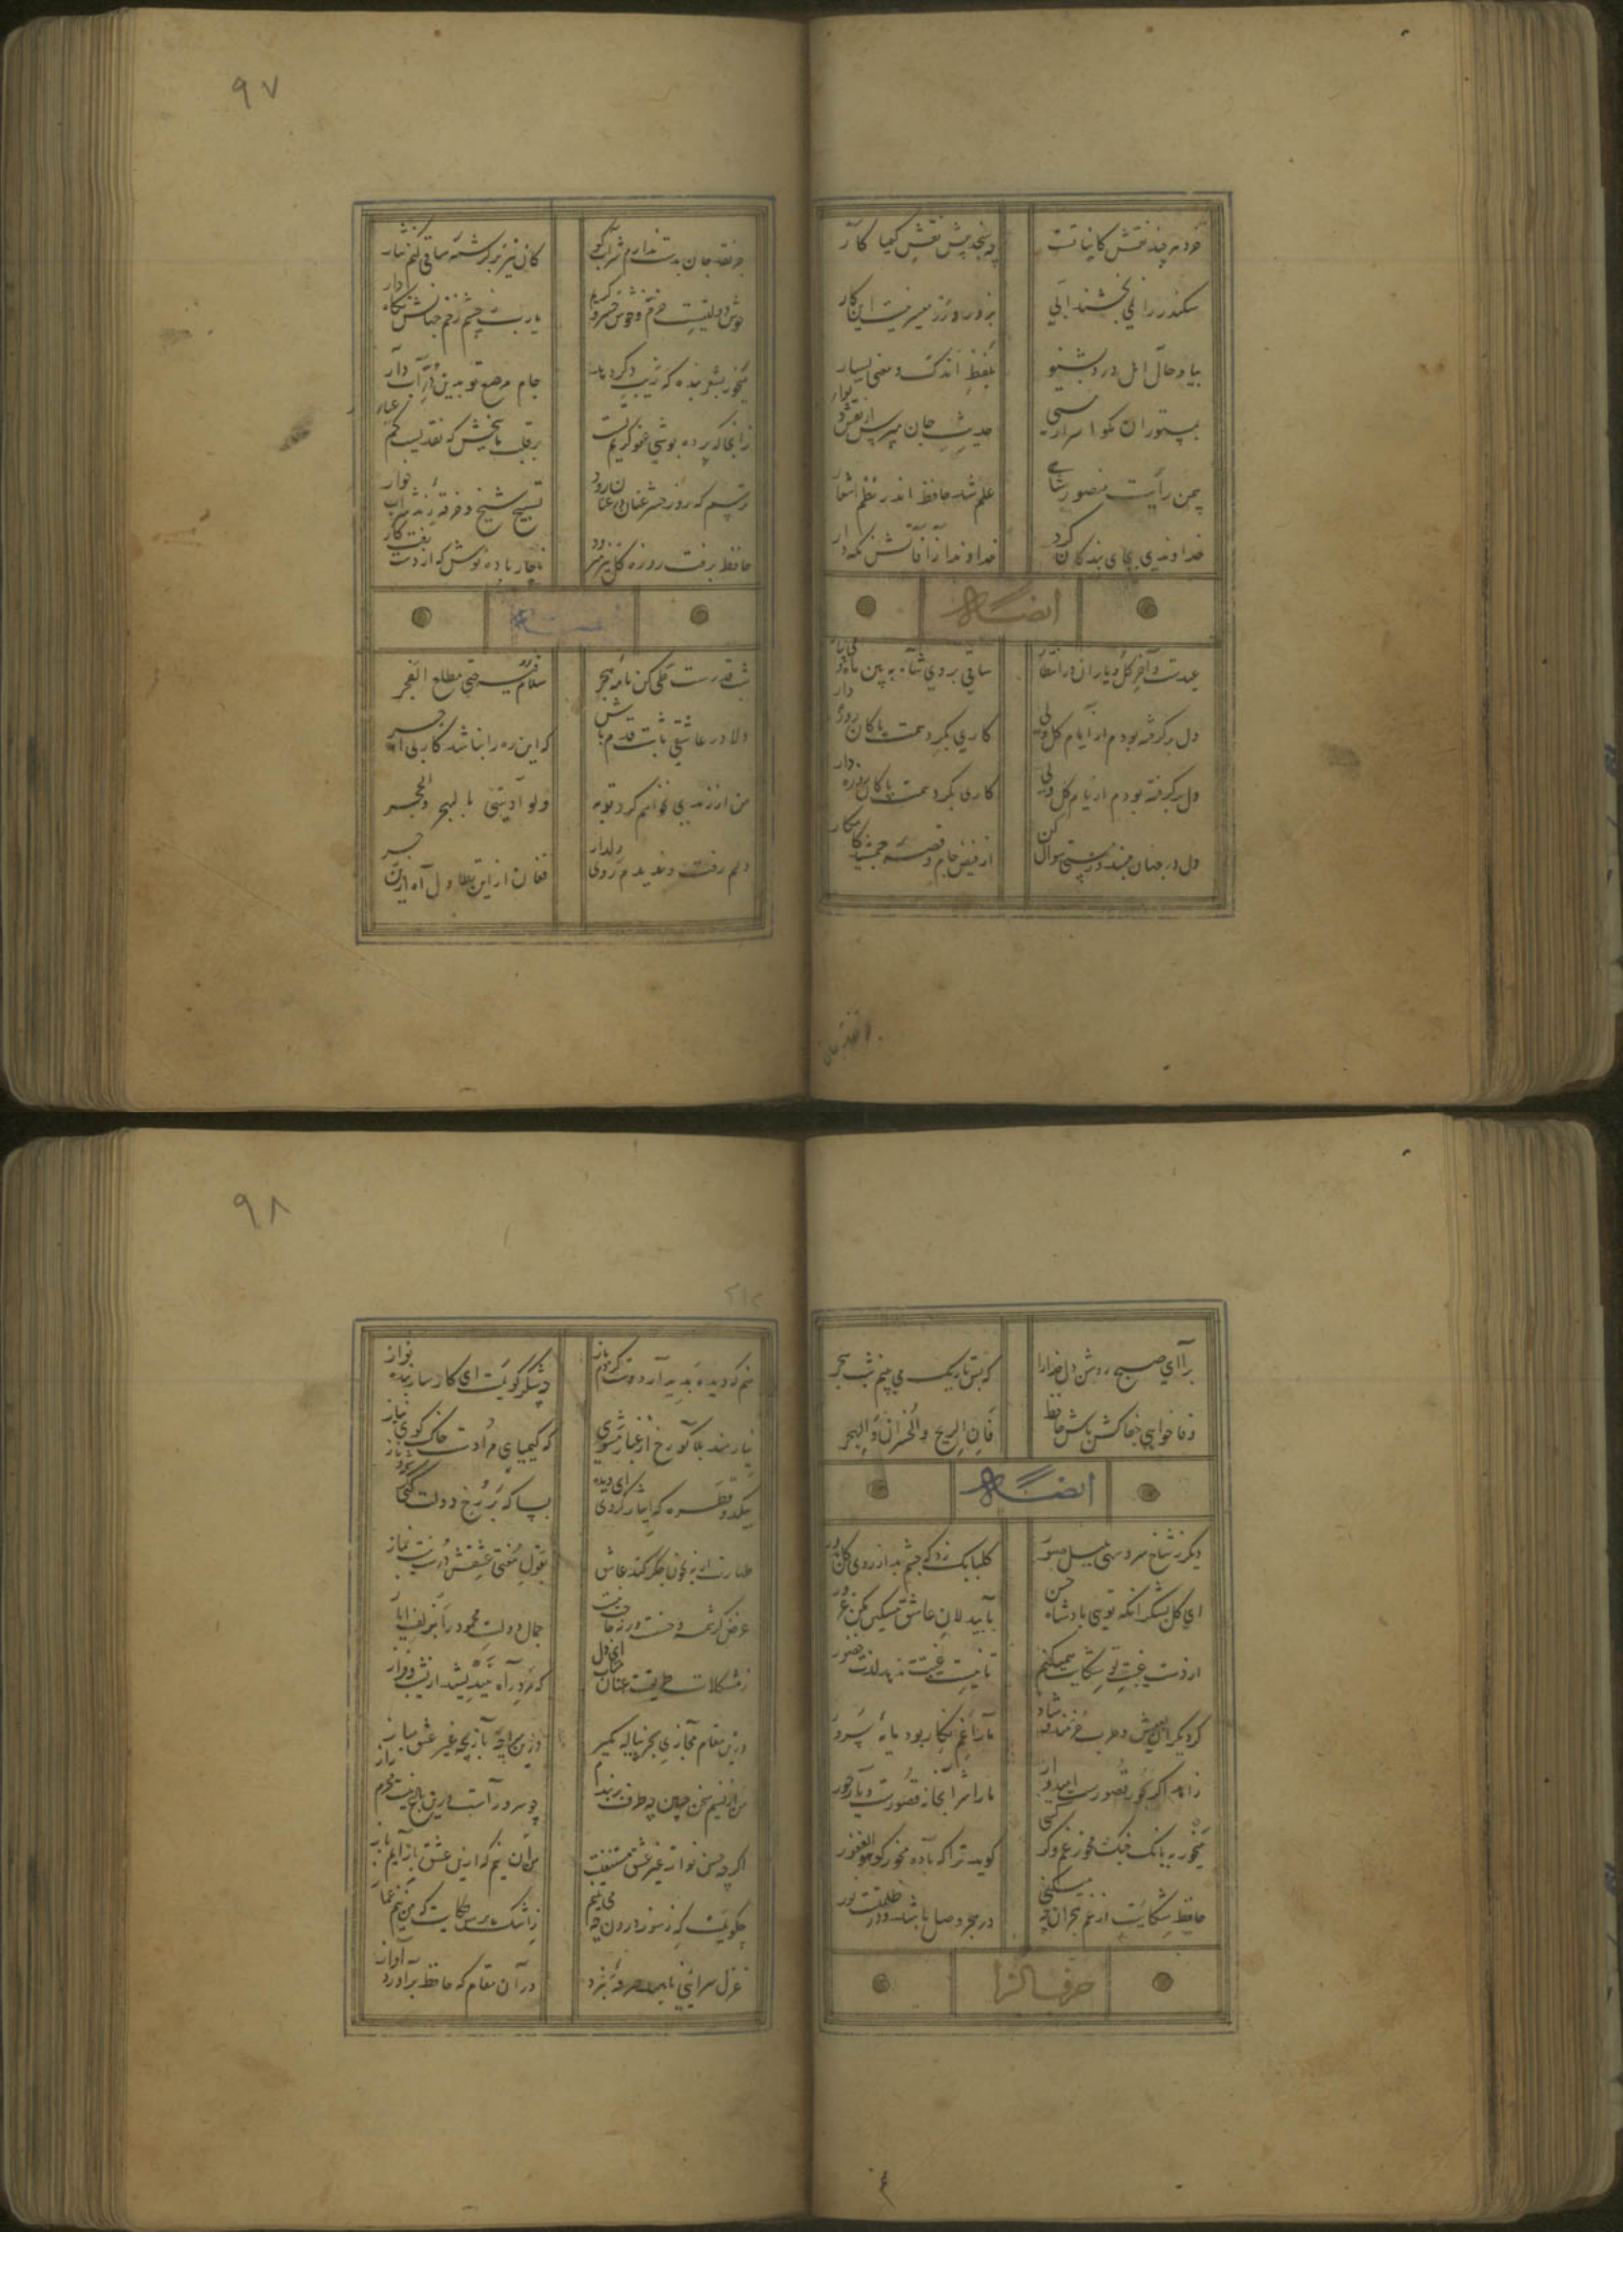 خرد هر چند نقش کایناتست چه سنجد پیش نقش کیمیا کار
سکندر را نمی بخشند آبی بزور و زر میسر نیست این کار
بیا و حال اهل درد بشنو بلفظ اندک و معنی بسیار
بمستوران مگو اسرار مستی حدیث جان مپرس از نقش دیوار
بیمن رایت منصور شاهی علم شد حافظ اندر نظم اشعار
خداوندی بجای بندگان کرد خداوندا ز آفاتش نگه دار
ایضاً
عیدست و آخر گل و یاران در انتظار ساقی بروی شاه ببین ماه و می بیار
دل برگرفته بودم از ایام گل ولی کاری بکرد همت پاکان روزه دار
دل برگرفته بودم از ایام گل ولی کاری بکرد همت پاکان روزه دار
دل در جهان مبند و ز مستی سوال کن از فیض جام و قصه جمشید کامکار
جز نقد جان
۹۷
جز نقد جان بدست ندارم شراب کو کان نیز بر کرشمه ساقی کنم نثار
خوش دولتیست خرم و خوش خسرو کریم یارب ز چشم زخم جهانش نگاه دار
می خور بشعر بنده که زیب دگر دهد جام مرصع تو بدین در آب دار
زانجا که پرده پوشی عفو کریم تست بر قلب ما ببخش که نقدیست کم عیار
ترسم که روز حشر عنان در عنان رود تسبیح شیخ و خرقه رند شراب خوار
حافظ برفت روزه گل نیز میرود ناچار باده نوش که از دست رفت کار
شب قدرست طی کن نامه هجر سلام فیه حتی مطلع الفجر
دلا در عاشقی ثابت قدم باش که این ره را نباشد کار بی اجر
من از رندی نخواهم کرد توبه ولو آذیتنی بالهجر والحجر
دلم رفت و ندیدم روی دلدار فغان از این تطاول آه ازین زجر
برآ ای صبح روشن دل خدا را که بس تاریک می بینم شب هجر
وفا خواهی جفاکش باش حافظ فان الربح والخسران والهجر
ایضاً
دیگر ز شاخ سرو سهی بلبل صبور گلبانگ زد که چشم بد از روی گل دور
ای گل بشکر آنکه تویی پادشاه حسن با بیدلان عاشق مسکین مکن غرور
از دست غیبت تو شکایت نمیکنم تا نیست غیبتی ندهد لذت حضور
گر دیگران بعیش و طرب خرمند و شاد ما را غم نگار بود مایه سرور
زاهد اگر بحور و قصورست امیدوار ما را شرابخانه قصورست و یار حور
می خور ببانگ چنگ و مخور غم وگر کسی گوید ترا که باده مخور گو هو الغفور
حافظ شکایت از غم هجران چه میکنی در هجر وصل باشد و در ظلمتست نور
حرف الزا
۹۸
۲۱۲
منم که دیده بدیدار دوست کردم باز چه شکر گویمت ای کارساز بنده نواز
نیازمند بلا گو رخ از غبار مشوی که کیمیای مرادست خاک کوی نیاز
بیک دو قطره که ایثار کردی ای دیده بسا که بر رخ دولت کنی
طهارت ار نه بخون جگر کند عاشق بقول مفتی عشقش درست نیست نماز
غرض کرشمه حسنست ورنه حاجت نیست جمال دولت محمود را بزلف ایاز
ز مشکلات طریقت عنان متاب ای دل که مرد راه نیندیشد از نشیب و فراز
درین مقام مجازی بجز پیاله مگیر درین سراچه بازیچه غیر عشق مباز
من از نسیم سخن چین چه طرف بربندم چو سرو راست درین باغ نیست محرم راز
اگرچه حسن تو از غیر عشق مستغنیست من آن نیم که ازین عشق بازی آیم باز
چه گویمت که ز سوز درون چه می بینم ز اشک پرس حکایت که من نیم غماز
غزل سرایی ناهید صرفه نبرد در آن مقام که حافظ برآورد آواز